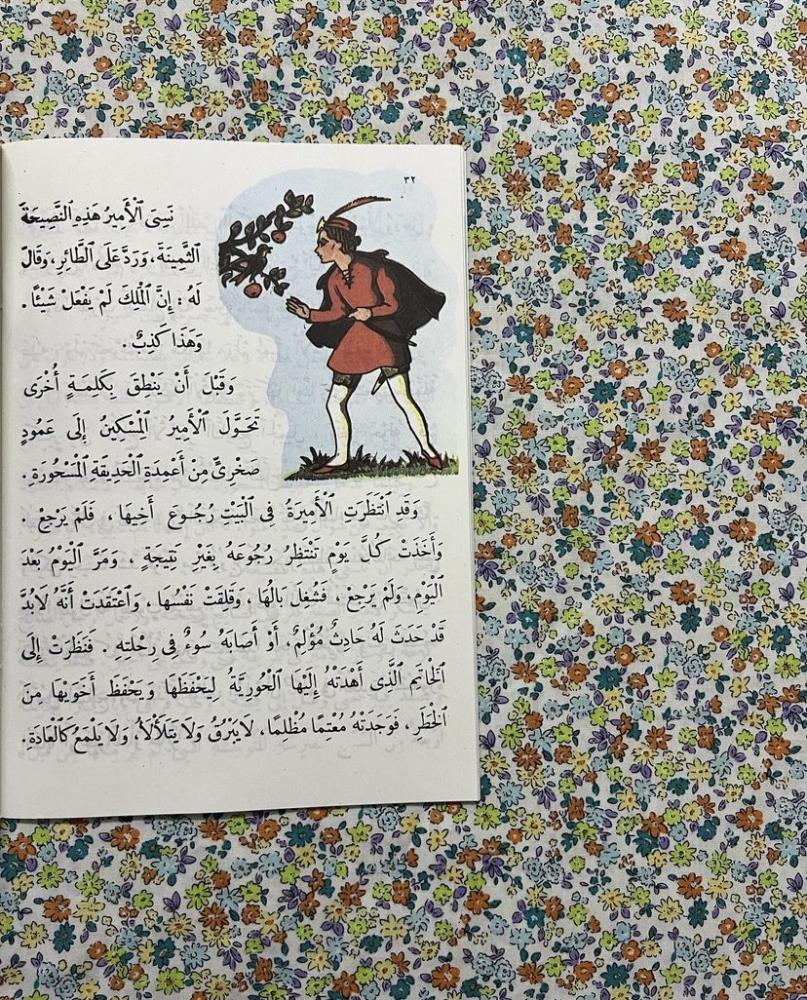 ٣٢
نَسِىَ ٱلْأَمِيرُ هَذِهِ ٱلنَّصِيحَةَ
ٱلثَّمِينَةَ، وَرَدَّ عَلَى ٱلطَّائِرِ، وَقَالَ
لَهُ : إِنَّ ٱلْمَلِكَ لَمْ يَفْعَلْ شَيْئًا .
وَهَذَا كَذِبٌ .
وَقَبْلَ أَنْ يَنْطِقَ بِكَلِمَةٍ أُخْرَى
تَحَوَّلَ ٱلْأَمِيرُ ٱلْمِسْكِينُ إِلَى عَمُودٍ
صَخْرِىٍّ مِنْ أَعْمِدَةِ ٱلْحَدِيقَةِ ٱلْمَسْحُورَةِ.
وَقَدِ ٱنْتَظَرَتِ ٱلْأَمِيرَةُ فِى ٱلْبَيْتِ رُجُوعَ أَخِيهَا ، فَلَمْ يَرْجِعْ .
وَأَخَذَتْ كُلَّ يَوْمٍ تَنْتَظِرُ رُجُوعَهُ بِغَيْرِ نَتِيجَةٍ ، وَمَرَّ ٱلْيَوْمُ بَعْدَ
ٱلْيَوْمِ، وَلَمْ يَرْجِعْ ، فَشُغِلَ بَالُهَا ، وَقَلِقَتْ نَفْسُهَا ، وَٱعْتَقَدَتْ أَنَّهُ لَابُدَّ
قَدْ حَدَثَ لَهُ حَادِثٌ مُؤْلِمٌ، أَوْ أَصَابَهُ سُوءٌ فِى رِحْلَتِهِ . فَنَظَرَتْ إِلَى
ٱلْخَاتِمِ ٱلَّذِى أَهْدَتْهُ إِلَيْهَا ٱلْحُورِيَّةُ لِيَحْفَظَهَا وَيَحْفَظَ أَخَوَيْهَا مِنَ
ٱلْخَطَرِ ، فَوَجَدَتْهُ مُعْتِمًا مُظْلِمًا، لَا يَبْرُقُ وَلَا يَتَلَأْلَأُ، وَلَا يَلْمَعُ كَٱلْعَادَةِ.